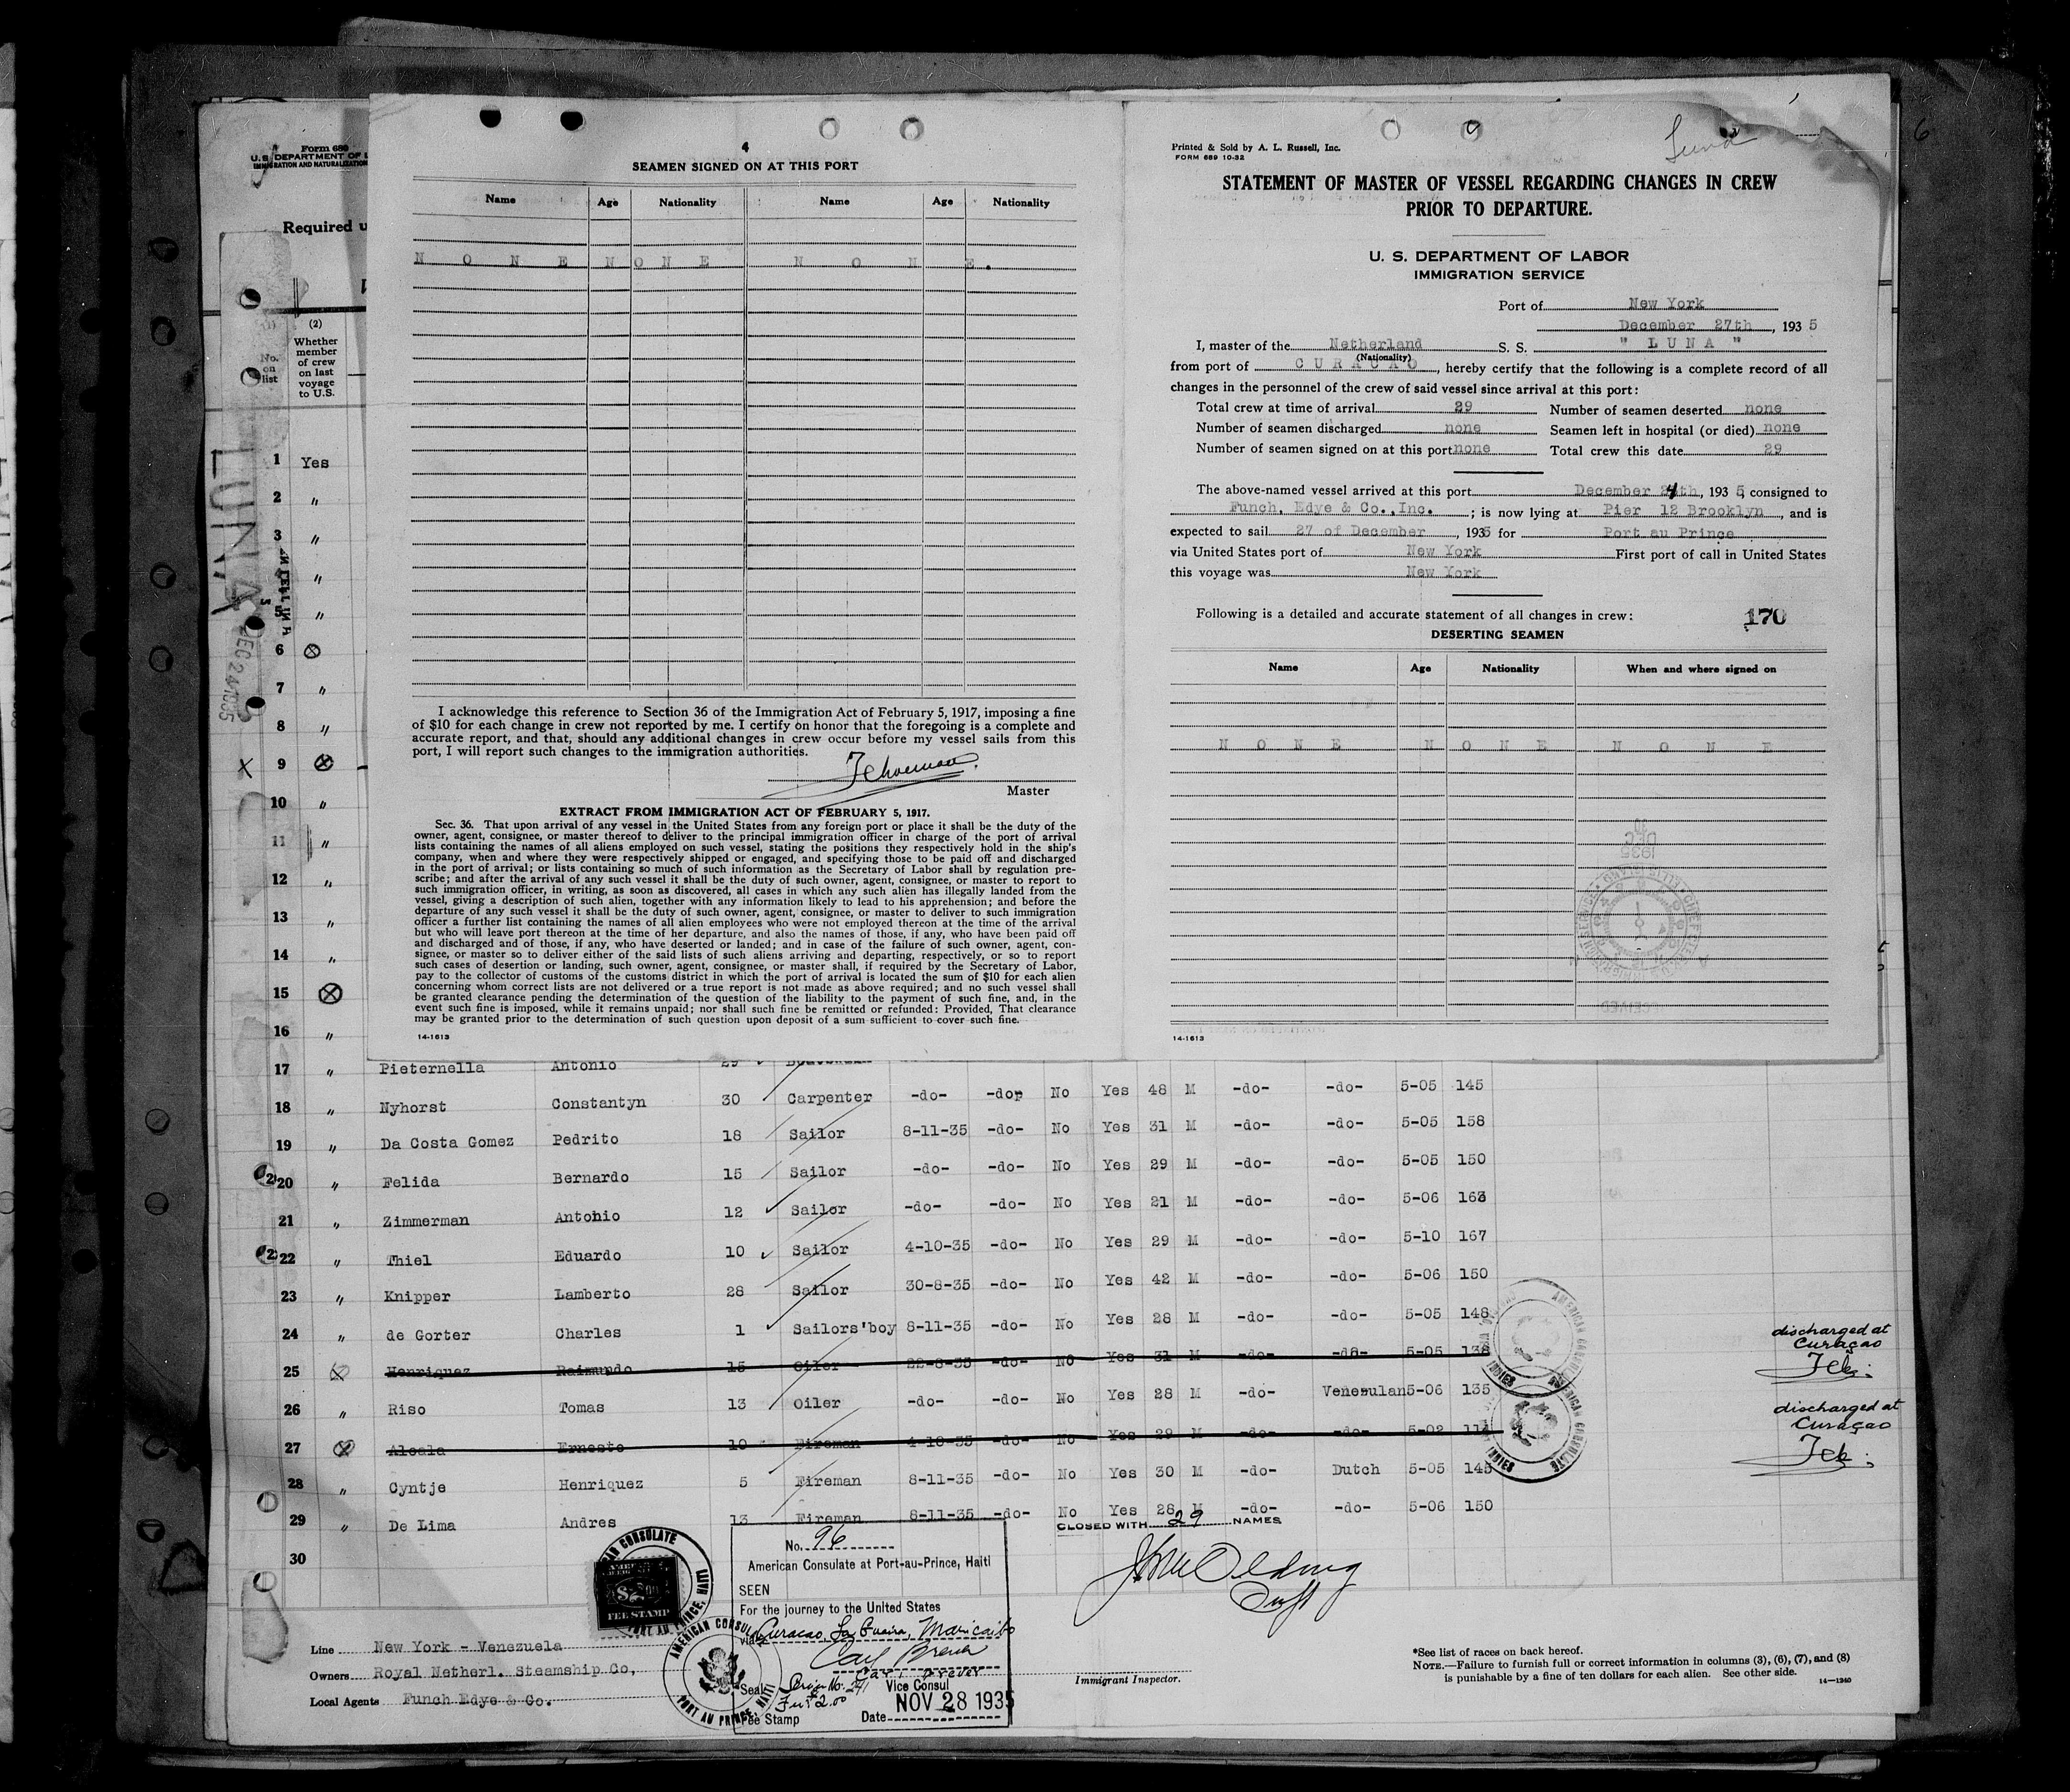 Form 689
U. S. DEPARTMENT OF L
IMMIGRATION AND NATURALIZATION
Required u
(1)
No. on list
(2)
Whether member of crew on last voyage to U.S.
LUNA
DEC 24 1935
4
SEAMEN SIGNED ON AT THIS PORT
Name Age Nationality Name Age Nationality
N O N E N O N E N O N E.
I acknowledge this reference to Section 36 of the Immigration Act of February 5, 1917, imposing a fine
of $10 for each change in crew not reported by me. I certify on honor that the foregoing is a complete and
accurate report, and that, should any additional changes in crew occur before my vessel sails from this
port, I will report such changes to the immigration authorities.
Master
EXTRACT FROM IMMIGRATION ACT OF FEBRUARY 5, 1917.
Sec. 36. That upon arrival of any vessel in the United States from any foreign port or place it shall be the duty of the
owner, agent, consignee, or master thereof to deliver to the principal immigration officer in charge of the port of arrival
lists containing the names of all aliens employed on such vessel, stating the positions they respectively hold in the ship's
company, when and where they were respectively shipped or engaged, and specifying those to be paid off and discharged
in the port of arrival; or lists containing so much of such information as the Secretary of Labor shall by regulation pre-
scribe; and after the arrival of any such vessel it shall be the duty of such owner, agent, consignee, or master to report to
such immigration officer, in writing, as soon as discovered, all cases in which any such alien has illegally landed from the
vessel, giving a description of such alien, together with any information likely to lead to his apprehension; and before the
departure of any such vessel it shall be the duty of such owner, agent, consignee, or master to deliver to such immigration
officer a further list containing the names of all alien employees who were not employed thereon at the time of the arrival
but who will leave port thereon at the time of her departure, and also the names of those, if any, who have been paid off
and discharged and of those, if any, who have deserted or landed; and in case of the failure of such owner, agent, con-
signee, or master so to deliver either of the said lists of such aliens arriving and departing, respectively, or so to report
such cases of desertion or landing, such owner, agent, consignee, or master shall, if required by the Secretary of Labor,
pay to the collector of customs of the customs district in which the port of arrival is located the sum of $10 for each alien
concerning whom correct lists are not delivered or a true report is not made as above required; and no such vessel shall
be granted clearance pending the determination of the question of the liability to the payment of such fine, and, in the
event such fine is imposed, while it remains unpaid; nor shall such fine be remitted or refunded: Provided, That clearance
may be granted prior to the determination of such question upon deposit of a sum sufficient to cover such fine.
14-1613
Luna
6
Printed & Sold by A. L. Russell, Inc.
FORM 689 10-32
STATEMENT OF MASTER OF VESSEL REGARDING CHANGES IN CREW
PRIOR TO DEPARTURE.
U. S. DEPARTMENT OF LABOR
IMMIGRATION SERVICE
Port of New York
December 27th, 1935
I, master of the Netherland S. S. " L U N A "
(Nationality)
from port of C U R A C A O, hereby certify that the following is a complete record of all
changes in the personnel of the crew of said vessel since arrival at this port:
Total crew at time of arrival 29 Number of seamen deserted none
Number of seamen discharged none Seamen left in hospital (or died) none
Number of seamen signed on at this port none Total crew this date 29
The above-named vessel arrived at this port December 24th, 1935, consigned to
Funch, Edye & Co.,Inc.; is now lying at Pier 12 Brooklyn, and is
expected to sail 27 of December, 1935 for Port au Prince
via United States port of New York First port of call in United States
this voyage was New York
Following is a detailed and accurate statement of all changes in crew: 170
DESERTING SEAMEN
Name Age Nationality When and where signed on
N O N E N O N E N O N E
14-1613
1 Yes
2 "
3 "
4 "
5 "
6
7 "
8 "
X 9
10 "
11 "
12 "
13 "
14 "
15
16 "
17 " Pieternella Antonio 29 Boatswain
18 " Nyhorst Constantyn 30 Carpenter -do- -do- No Yes 48 M -do- -do- 5-05 145
19 " Da Costa Gomez Pedrito 18 Sailor 8-11-35 -do- No Yes 31 M -do- -do- 5-05 158
20 " Felida Bernardo 15 Sailor -do- -do- No Yes 29 M -do- -do- 5-05 150
21 " Zimmerman Antonio 12 Sailor -do- -do- No Yes 21 M -do- -do- 5-06 163
22 " Thiel Eduardo 10 Sailor 4-10-35 -do- No Yes 29 M -do- -do- 5-10 167
23 " Knipper Lamberto 28 Sailor 30-8-35 -do- No Yes 42 M -do- -do- 5-06 150
24 " de Gorter Charles 1 Sailors'boy 8-11-35 -do- No Yes 28 M -do- -do- 5-05 148
25 Henriquez Raimundo 15 Oiler 22-8-35 -do- No Yes 31 M -do- -do- 5-05 138 discharged at Curaçao
26 " Riso Tomas 13 Oiler -do- -do- No Yes 28 M -do- Venesulan 5-06 135
27 Alcala Ernesto 10 Fireman 4-10-35 -do- No Yes 29 M -do- -do- 5-02 114 discharged at Curaçao
28 " Cyntje Henriquez 5 Fireman 8-11-35 -do- No Yes 30 M -do- Dutch 5-05 145
29 " De Lima Andres 13 Fireman 8-11-35 -do- No Yes 28 M -do- -do- 5-06 150
30
CLOSED WITH 29 NAMES
No. 96
American Consulate at Port-au-Prince, Haiti
SEEN
For the journey to the United States
via Curacao, La Guaira, Maricaibo
Carl Breuer
Vice Consul
Seal
Fee Stamp
Date NOV 28 1935
AMERICAN CONSULATE
PORT AU PRINCE, HAITI
FEE STAMP
Line New York - Venezuela
Owners Royal Netherl. Steamship Co,
Local Agents Funch Edye & Co.
Immigrant Inspector.
*See list of races on back hereof.
NOTE.—Failure to furnish full or correct information in columns (3), (6), (7), and (8)
is punishable by a fine of ten dollars for each alien. See other side.
14—1240